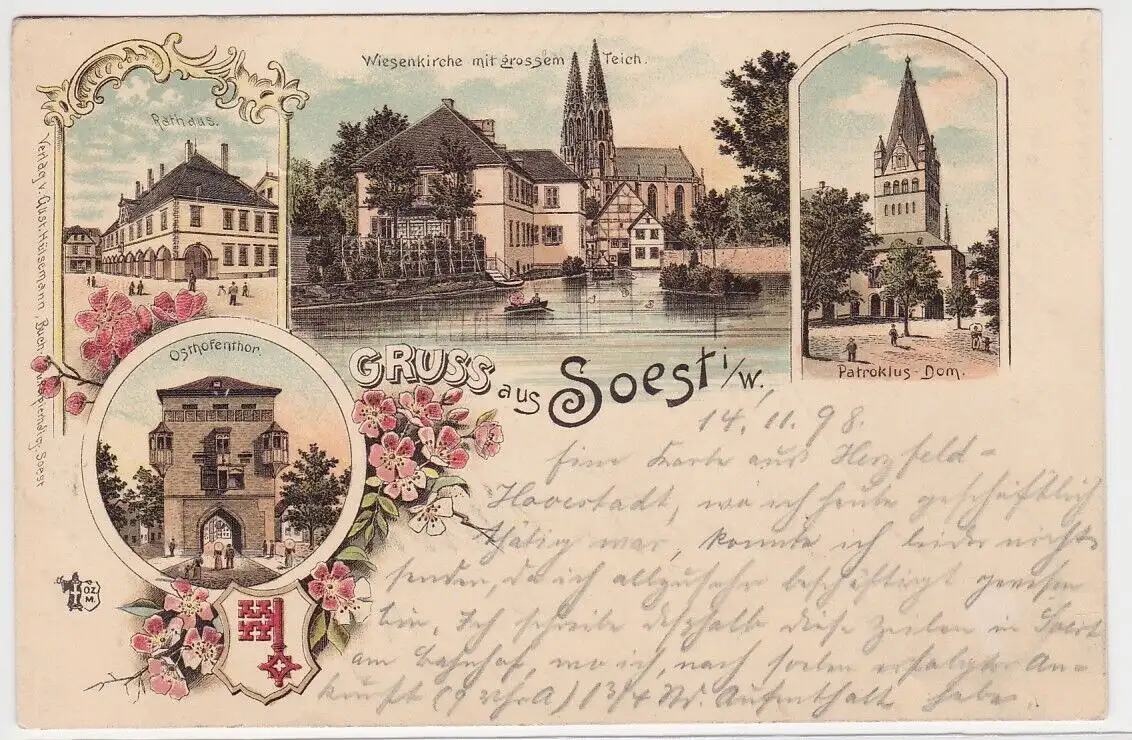 Wiesenkirche mit grossem Teich.
Rathaus.
Osthofenthor.
Patroklus-Dom.
GRUSS aus Soest i/W.
Verlag v. Gust. Hülsemann, Buch
Soest
OZ.
M.
14. 11. 98.
Eine Karte aus Herzfeld-
Hovestadt, wo ich heute geschäftlich
thätig war, konnte ich leider nicht
senden, da ich allzusehr beschäftigt gewesen
bin. Ich schreibe deshalb diese Zeilen in Soest
am Bahnhof, wo ich, nach soeben erfolgter An-
kunft (9 Uhr A) 1 3/4 St. Aufenthalt habe.